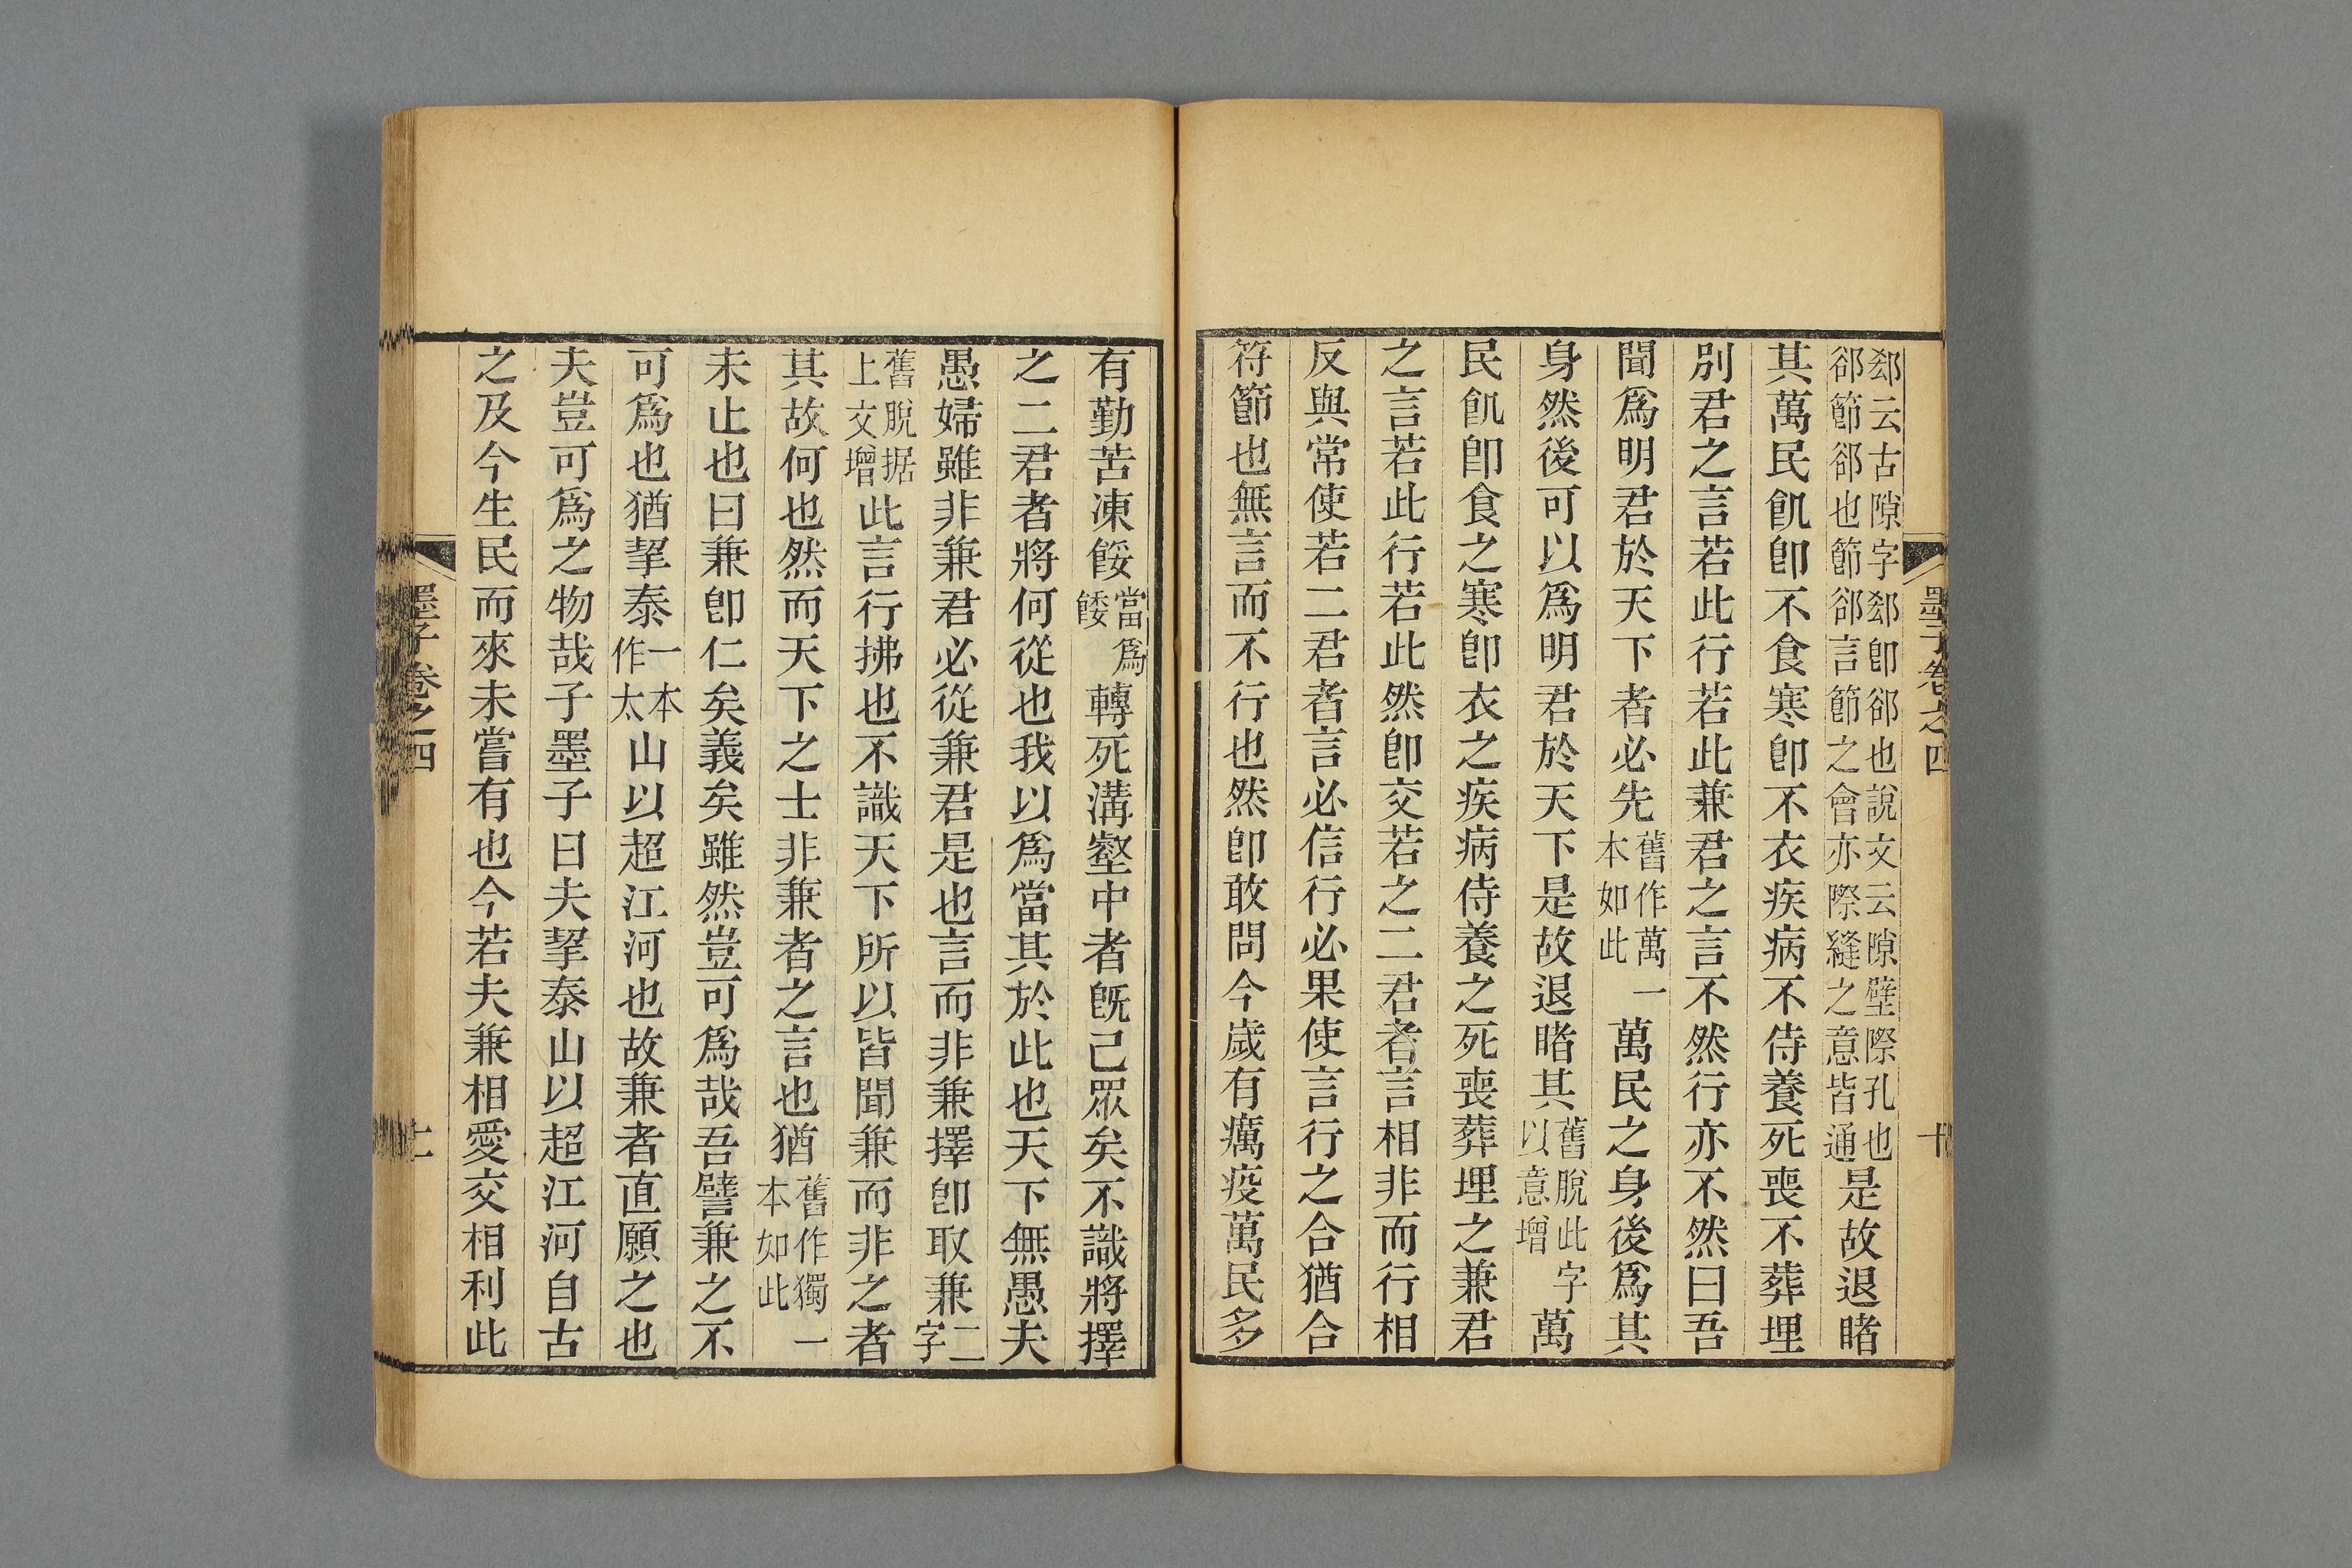 郄云古隙字郄卽郤也說文云隙壁際孔也
郤節郤也節郤言節之會亦際縫之意皆通是故退睹
其萬民飢卽不食寒卽不衣疾病不侍養死喪不葬埋
別君之言若此行若此兼君之言不然行亦不然曰吾
聞爲明君於天下者必先舊作萬一本如此萬民之身後爲其
身然後可以爲明君於天下是故退睹其舊脫此字以意增萬
民飢卽食之寒卽衣之疾病侍養之死喪葬埋之兼君
之言若此行若此然卽交若之二君者言相非而行相
反與常使若二君者言必信行必果使言行之合猶合
符節也無言而不行也然卽敢問今歲有癘疫萬民多
墨子卷之四
十
有勤苦凍餒當爲餧轉死溝壑中者旣已眾矣不識將擇
之二君者將何從也我以爲當其於此也天下無愚夫
愚婦雖非兼君必從兼君是也言而非兼擇卽取兼二字
舊脫据上文增此言行拂也不識天下所以皆聞兼而非之者
其故何也然而天下之士非兼者之言也猶舊作獨一本如此
未止也曰兼卽仁矣義矣雖然豈可爲哉吾譬兼之不
可爲也猶挈泰一本作太山以超江河也故兼者直願之也
夫豈可爲之物哉子墨子曰夫挈泰山以超江河自古
之及今生民而來未嘗有也今若夫兼相愛交相利此
墨子卷之四